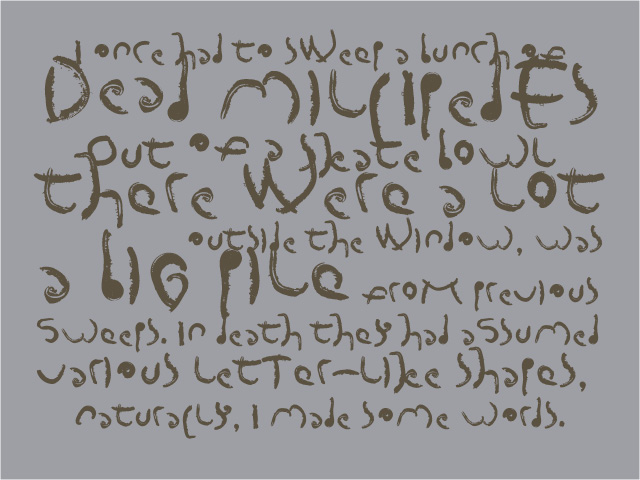 I once had to sweep a bunch of
Dead millipedes
out of a skate bowl
there were a lot
outside the window, was
a big pile from previous
sweeps. in death they had assumed
various letter-like shapes,
naturally, i made some words.